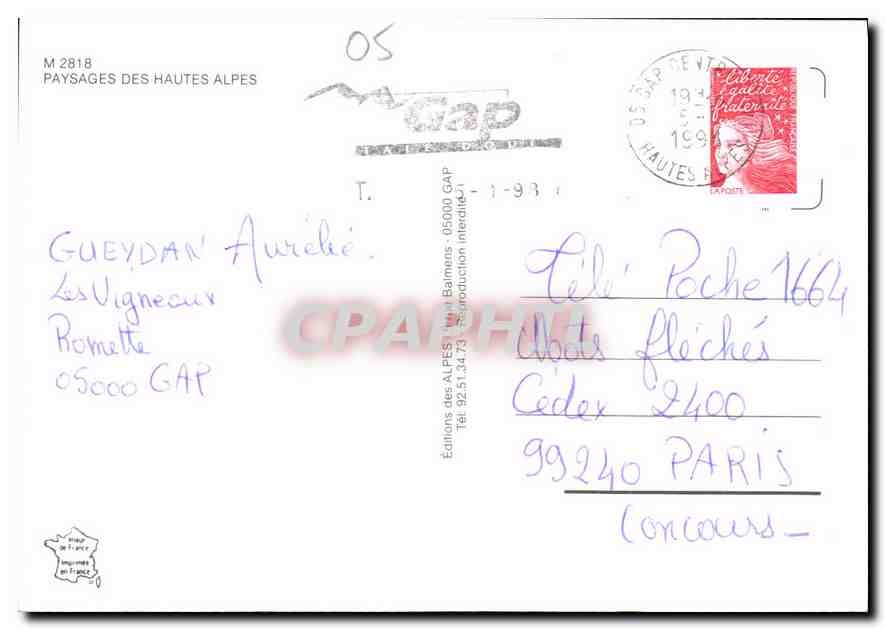 05
M 2818
PAYSAGES DES HAUTES ALPES
Gap
T. 5-1-98
05 GAP CENTR
19
199
HAUTES ALPES
liberté
égalité
fraternité
LA POSTE
GUEYDAN Aurélie.
Les Vigneaux
Romette
05000 GAP
Éditions des ALPES Balmens - 05000 GAP
Tél: 92.51.34.73 - Reproduction interdite
CPAPHIL
Télé Poche 1664
Mots fléchés
Cédex 2400
99240 PARIS
Concours -
de France
Imprimée
en France